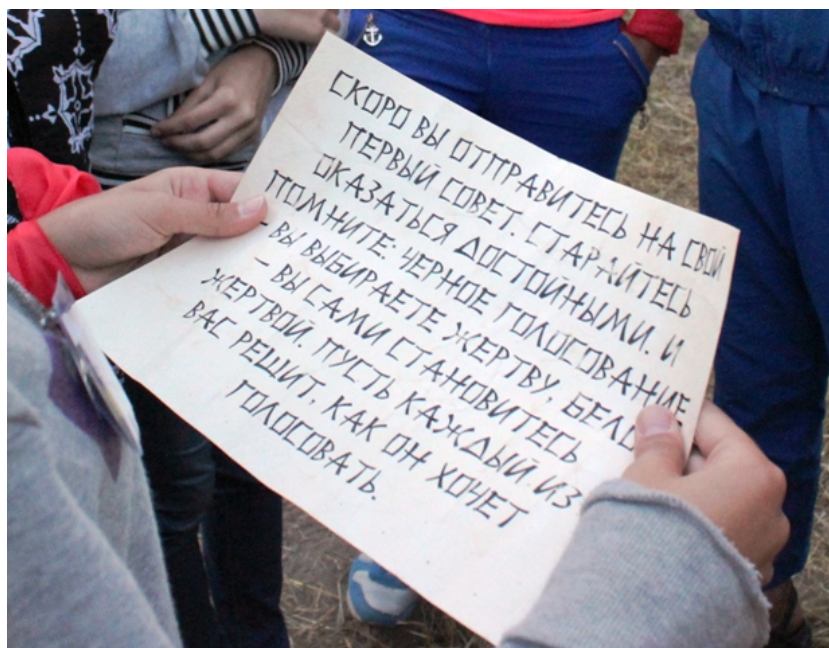 СКОРО ВЫ ОТПРАВИТЕСЬ НА СВОЙ
ПЕРВЫЙ СОВЕТ. СТАРАЙТЕСЬ
ОКАЗАТЬСЯ ДОСТОЙНЫМИ. И
ПОМНИТЕ: ЧЕРНОЕ ГОЛОСОВАНИЕ
- ВЫ ВЫБИРАЕТЕ ЖЕРТВУ, БЕЛО
- ВЫ САМИ СТАНОВИТЕСЬ
ЖЕРТВОЙ. ПУСТЬ КАЖДЫЙ ИЗ
ВАС РЕШИТ, КАК ОН ХОЧЕТ
ГОЛОСОВАТЬ.